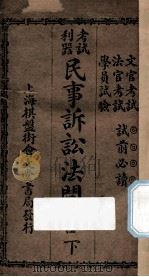 文官考試
法官考試
學員試驗
試前必讀
考試
利器
民事訴訟法問 下
上海棋盤街會 書局發行